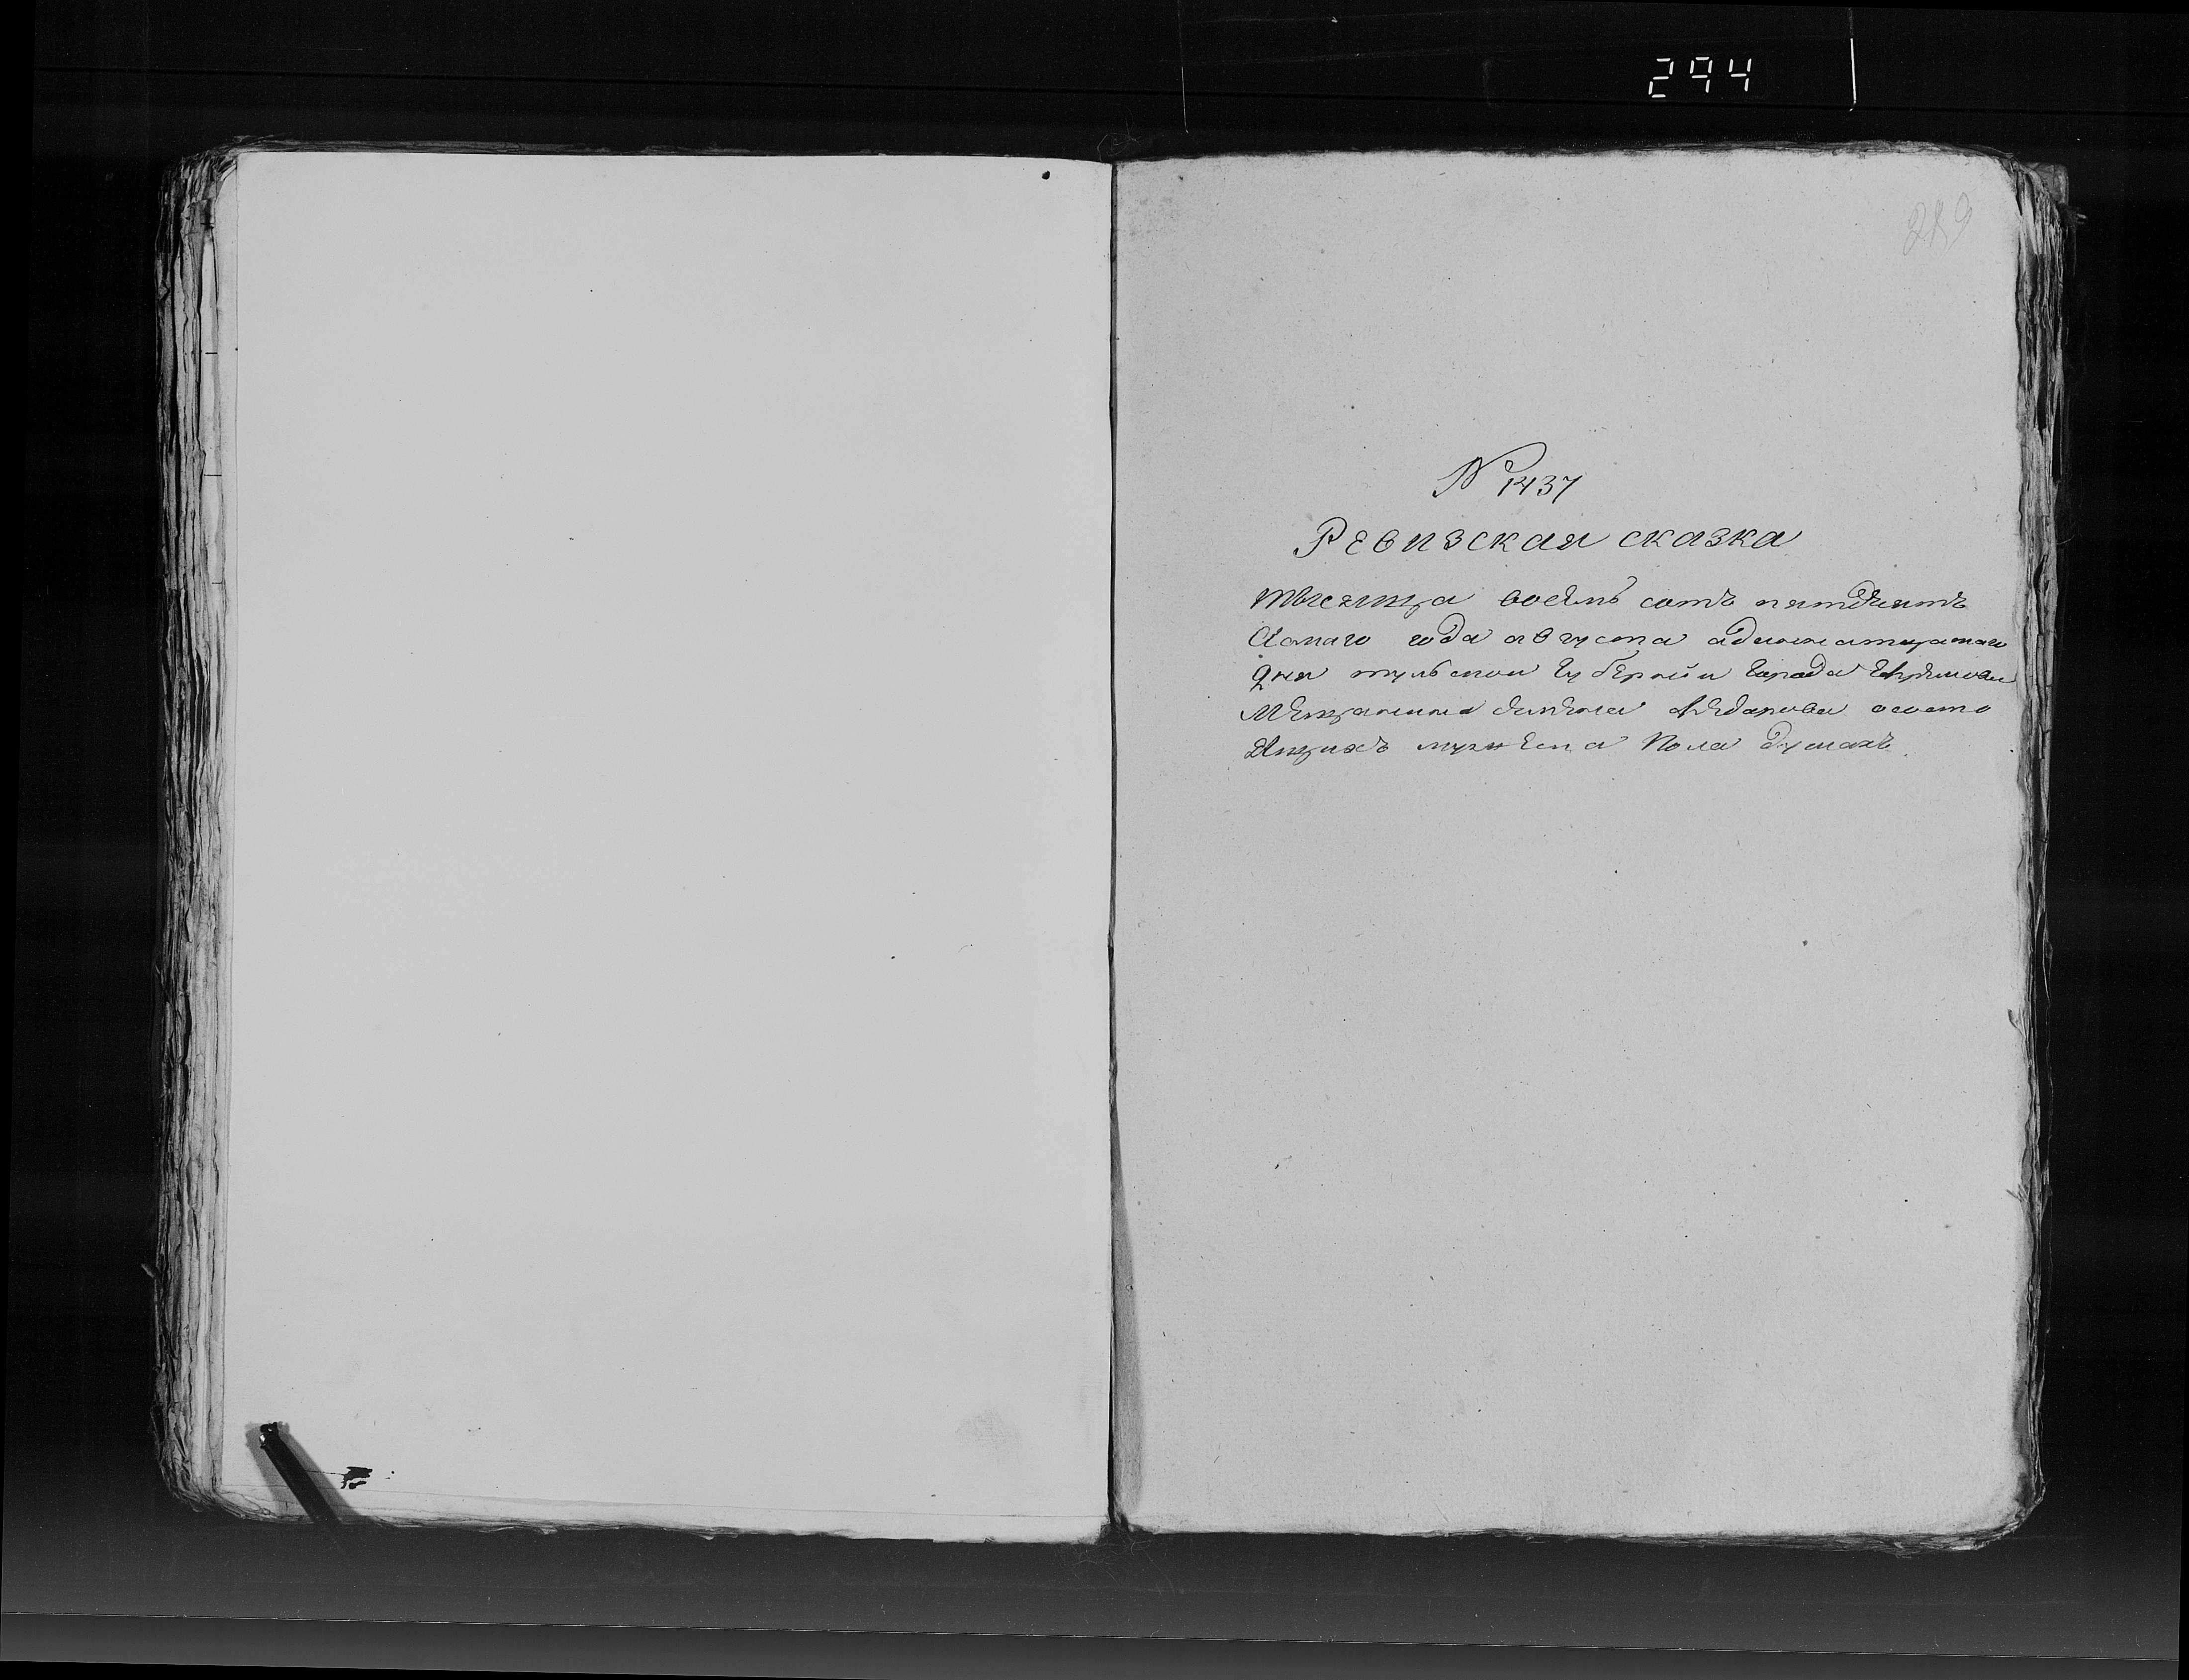 294
289
№ 1437
Ревизская сказка
тысяща восемь сотъ пятдесятъ
года августа адиннатцатаго
дня тульской губерніи города Ефремова
Мещанина Федарова осасто
ящихъ мужеска пола душахъ